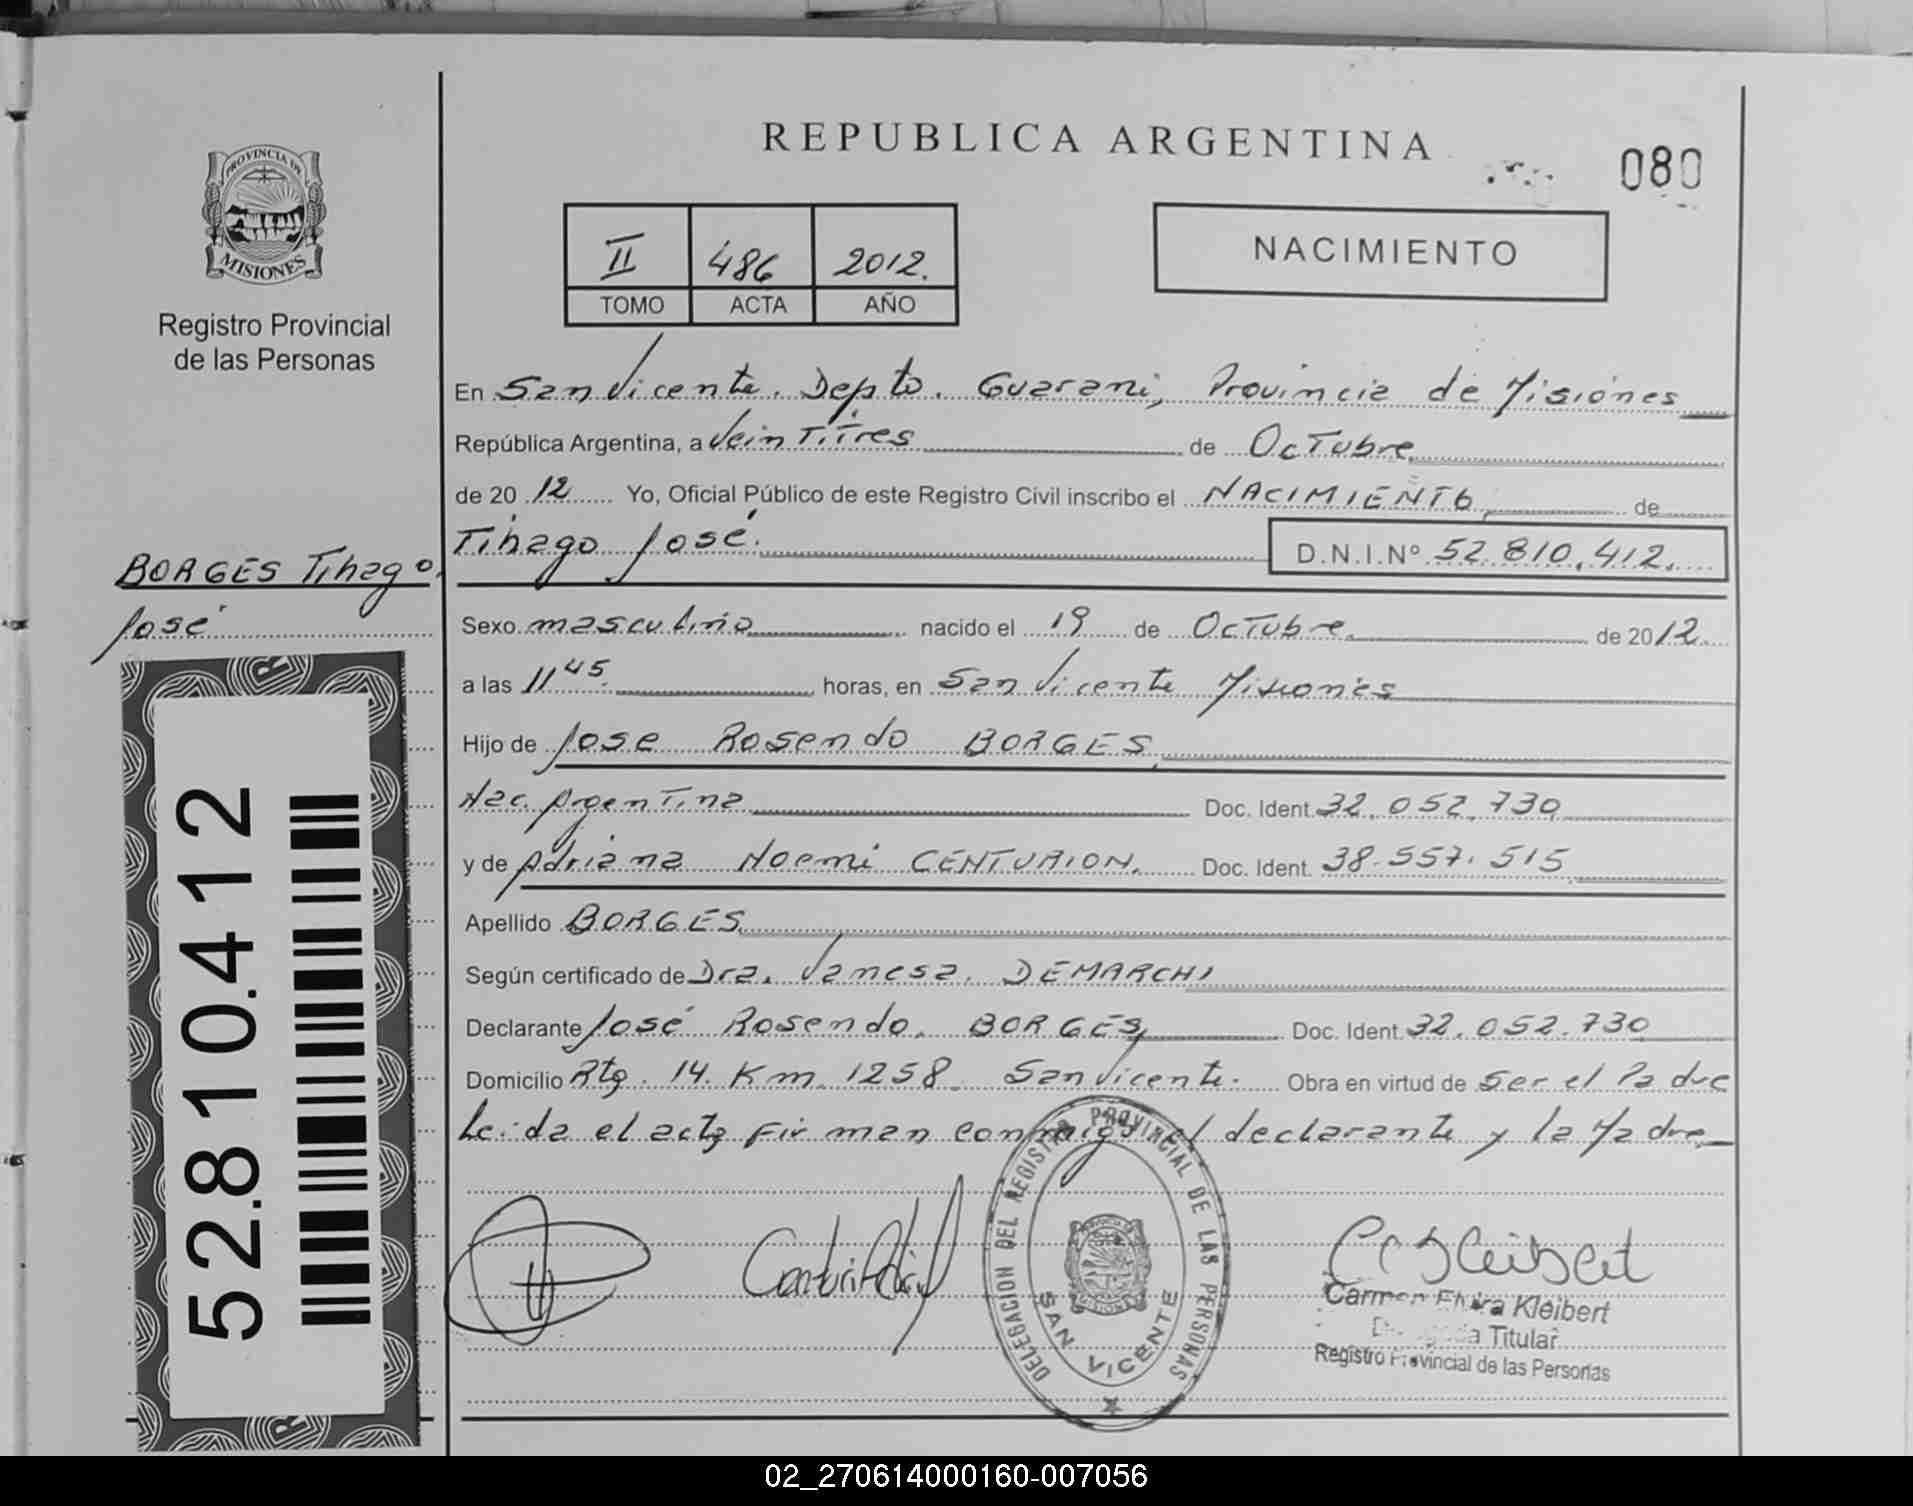 REPUBLICA ARGENTINA
080
PROVINCIA DE
MISIONES
Registro Provincial
de las Personas
II 486 2012.
TOMO ACTA AÑO
NACIMIENTO
En San Vicente. Depto. Guarani, Provincia de Misiones
República Argentina, a Veintitres de Octubre
de 2012 Yo, Oficial Público de este Registro Civil inscribo el NACIMIENTO de
Tihago José.
D.N.I.Nº 52.810.412.
BORGES Tihago
José
Sexo masculino nacido el 19 de Octubre de 2012
a las 11 45. horas, en San Vicente Misiones
Hijo de Jose Rosendo BORGES
Nac. Argentina Doc. Ident. 32.052.730
y de Adriana Noemi CENTURION. Doc. Ident. 38.557.515
Apellido BORGES
Según certificado de Dra. Vanesa. DEMARCHI
Declarante José Rosendo. BORGES Doc. Ident. 32.052.730
Domicilio Rta. 14. Km. 1258. San Vicente. Obra en virtud de Ser el Padre
Leida el acta Firman conmigo el declarante y la Madre
52.810.412
DELEGACION DEL REGISTRO PROVINCIAL DE LAS PERSONAS
SAN VICENTE
Kleibert
Titular
Registro Provincial de las Personas
02_270614000160-007056